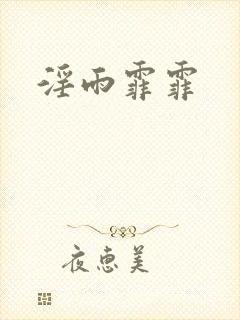 淫雨霏霏
夜惠美